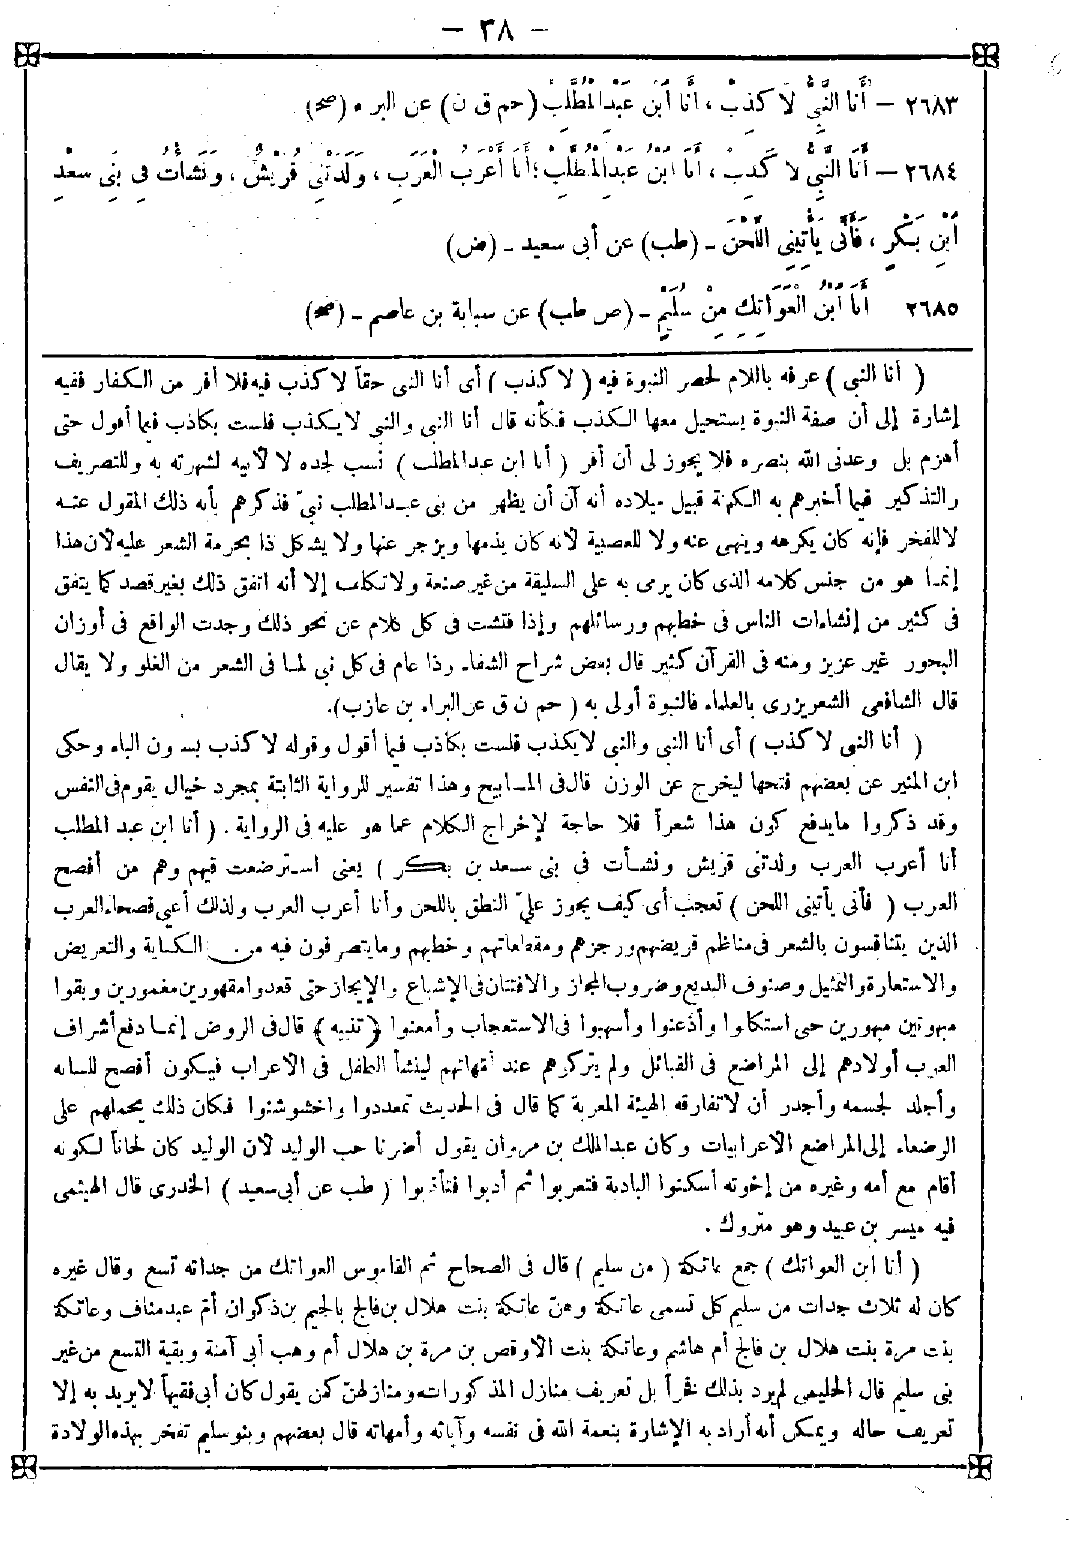 — ٣٨ —
٢٦٨٣ — أَنَا النَّبِيُّ لَا كَذِبْ ، أَنَا ابْنُ عَبْدِ الْمُطَّلِبْ (حم ق ن) عن البراء (صح)
٢٦٨٤ — أَنَا النَّبِيُّ لَا كَذِبْ ، أَنَا ابْنُ عَبْدِ الْمُطَّلِبْ ؛ أَنَا أَعْرَبُ الْعَرَبِ ، وَلَدَتْنِي قُرَيْشٌ ، وَنَشَأْتُ فِي بَنِي سَعْدِ
ابْنِ بَكْرٍ ، فَأَنَّى يَأْتِينِي اللَّحْنُ ـ (طب) عن أبى سعيد ـ (ض)
٢٦٨٥ أَنَا ابْنُ الْعَوَاتِكِ مِنْ سُلَيْمٍ ـ (ص طب) عن سيابة بن عاصم ـ (صح)
( أنا النبي ) عرفه باللام لحصر النبوة فيه ( لا كذب ) أى أنا النبى حقاً لا كذب فيه فلا أفر من الكفار ففيه
إشارة إلى أن صفة النبوة يستحيل معها الكذب فكأنه قال أنا النبى والنبى لا يكذب فلست بكاذب فيما أقول حتى
أهزم بل وعدنى الله بنصره فلا يجوز لى أن أفر ( أنا ابن عبد المطلب ) نسب لجده لا لأبيه لشهرته به وللتصريف
والتذكير فيما أخبرهم به الكهنة قبيل ميلاده أنه آن أن يظهر من بنى عبد المطلب نبيّ فذكرهم بأنه ذلك المقول عنه
لا للفخر فإنه كان يكرهه وينهى عنه ولا للعصبية لأنه كان يذمها ويزجر عنها ولا يشكل ذا بحرمة الشعر عليه لأن هذا
إنما هو من جنس كلامه الذى كان يرمى به على السليقة من غير صنعة ولا تكلف إلا أنه اتفق ذلك بغير قصد كما يتفق
فى كثير من إنشاءات الناس فى خطبهم ورسائلهم وإذا فتشت فى كل كلام عن نحو ذلك وجدت الواقع فى أوزان
البحور غير عزيز ومنه فى القرآن كثير قال بعض شراح الشفاء وذا عام فى كل نبى لما فى الشعر من الغلو ولا يقال
قال الشافعى الشعر يزرى بالعلماء فالنبوة أولى به ( حم ن ق عن البراء بن عازب).
( أنا النبى لا كذب ) أى أنا النبى والنبى لا يكذب فلست بكاذب فيما أقول وقوله لا كذب بسكون الباء وحكى
ابن المنير عن بعضهم فتحها ليخرج عن الوزن قال فى المصابيح وهذا تفسير للرواية الثابتة بمجرد خيال يقوم فى النفس
وقد ذكروا ما يدفع كون هذا شعراً فلا حاجة لإخراج الكلام عما هو عليه فى الرواية . ( أنا ابن عبد المطلب
أنا أعرب العرب ولدتنى قريش ونشأت فى بنى سعد بن بكر ) يعنى استرضعت فيهم وهم من أفصح
العرب ( فأنى يأتينى اللحن ) تعجب أى كيف يجوز عليّ النطق باللحن وأنا أعرب العرب ولذلك أعي فصحاء العرب
الذين يتنافسون بالشعر فى مناظم قريضهم ورجزهم ومقطعاتهم وخطبهم وما يتصرفون فيه من الكناية والتعريض
والاستعارة والتمثيل وصنوف البديع وضروب المجاز والافتنان فى الإشباع والإيجاز حتى قعدوا مقهورين مغمورين وبقوا
مبهوتين مبهورين حتى استكانوا وأذعنوا وأسهبوا فى الاستعجاب وأمعنوا ﴿تنبيه﴾ قال فى الروض إنما دفع أشراف
العرب أولادهم إلى المراضع فى القبائل ولم يتركوهم عند أمهاتهم لينشأ الطفل فى الأعراب فيكون أفصح للسانه
وأجلد لجسمه وأجدر أن لا تفارقه الهيئة المعربة كما قال فى الحديث تمعددوا واخشوشنوا فكان ذلك يحملهم على
الرضعاء إلى المراضع الأعرابيات وكان عبد الملك بن مروان يقول أضرنا حب الوليد لأن الوليد كان لحاناً لكونه
أقام مع أمه وغيره من إخوته أسكنوا البادية فتعربوا ثم أدبوا فتأدبوا ( طب عن أبى سعيد ) الخدرى قال الهيثمى
فيه ميسر بن عبيد وهو متروك .
( أنا ابن العواتك ) جمع عاتكة ( من سليم ) قال فى الصحاح ثم القاموس العواتك من جداته تسع وقال غيره
كان له ثلاث جدات من سليم كل تسمى عاتكة وهنّ عاتكة بنت هلال بن فالج بالجيم بن ذكوان أمّ عبد مناف وعاتكة
بنت مرة بنت هلال بن فالج أم هاشم وعاتكة بنت الأوقص بن مرة بن هلال أم وهب أبى آمنة وبقية التسع من غير
بنى سليم قال الحليمى لم يرد بذلك فخراً بل تعريف منازل المذكورات ومنازلهنّ كمن يقول كان أبى فقيهاً لا يريد به إلا
تعريف حاله ويمكن أنه أراد به الإشارة بنعمة الله فى نفسه وآبائه وأمهاته قال بعضهم وبنو سليم تفخر بهذه الولادة